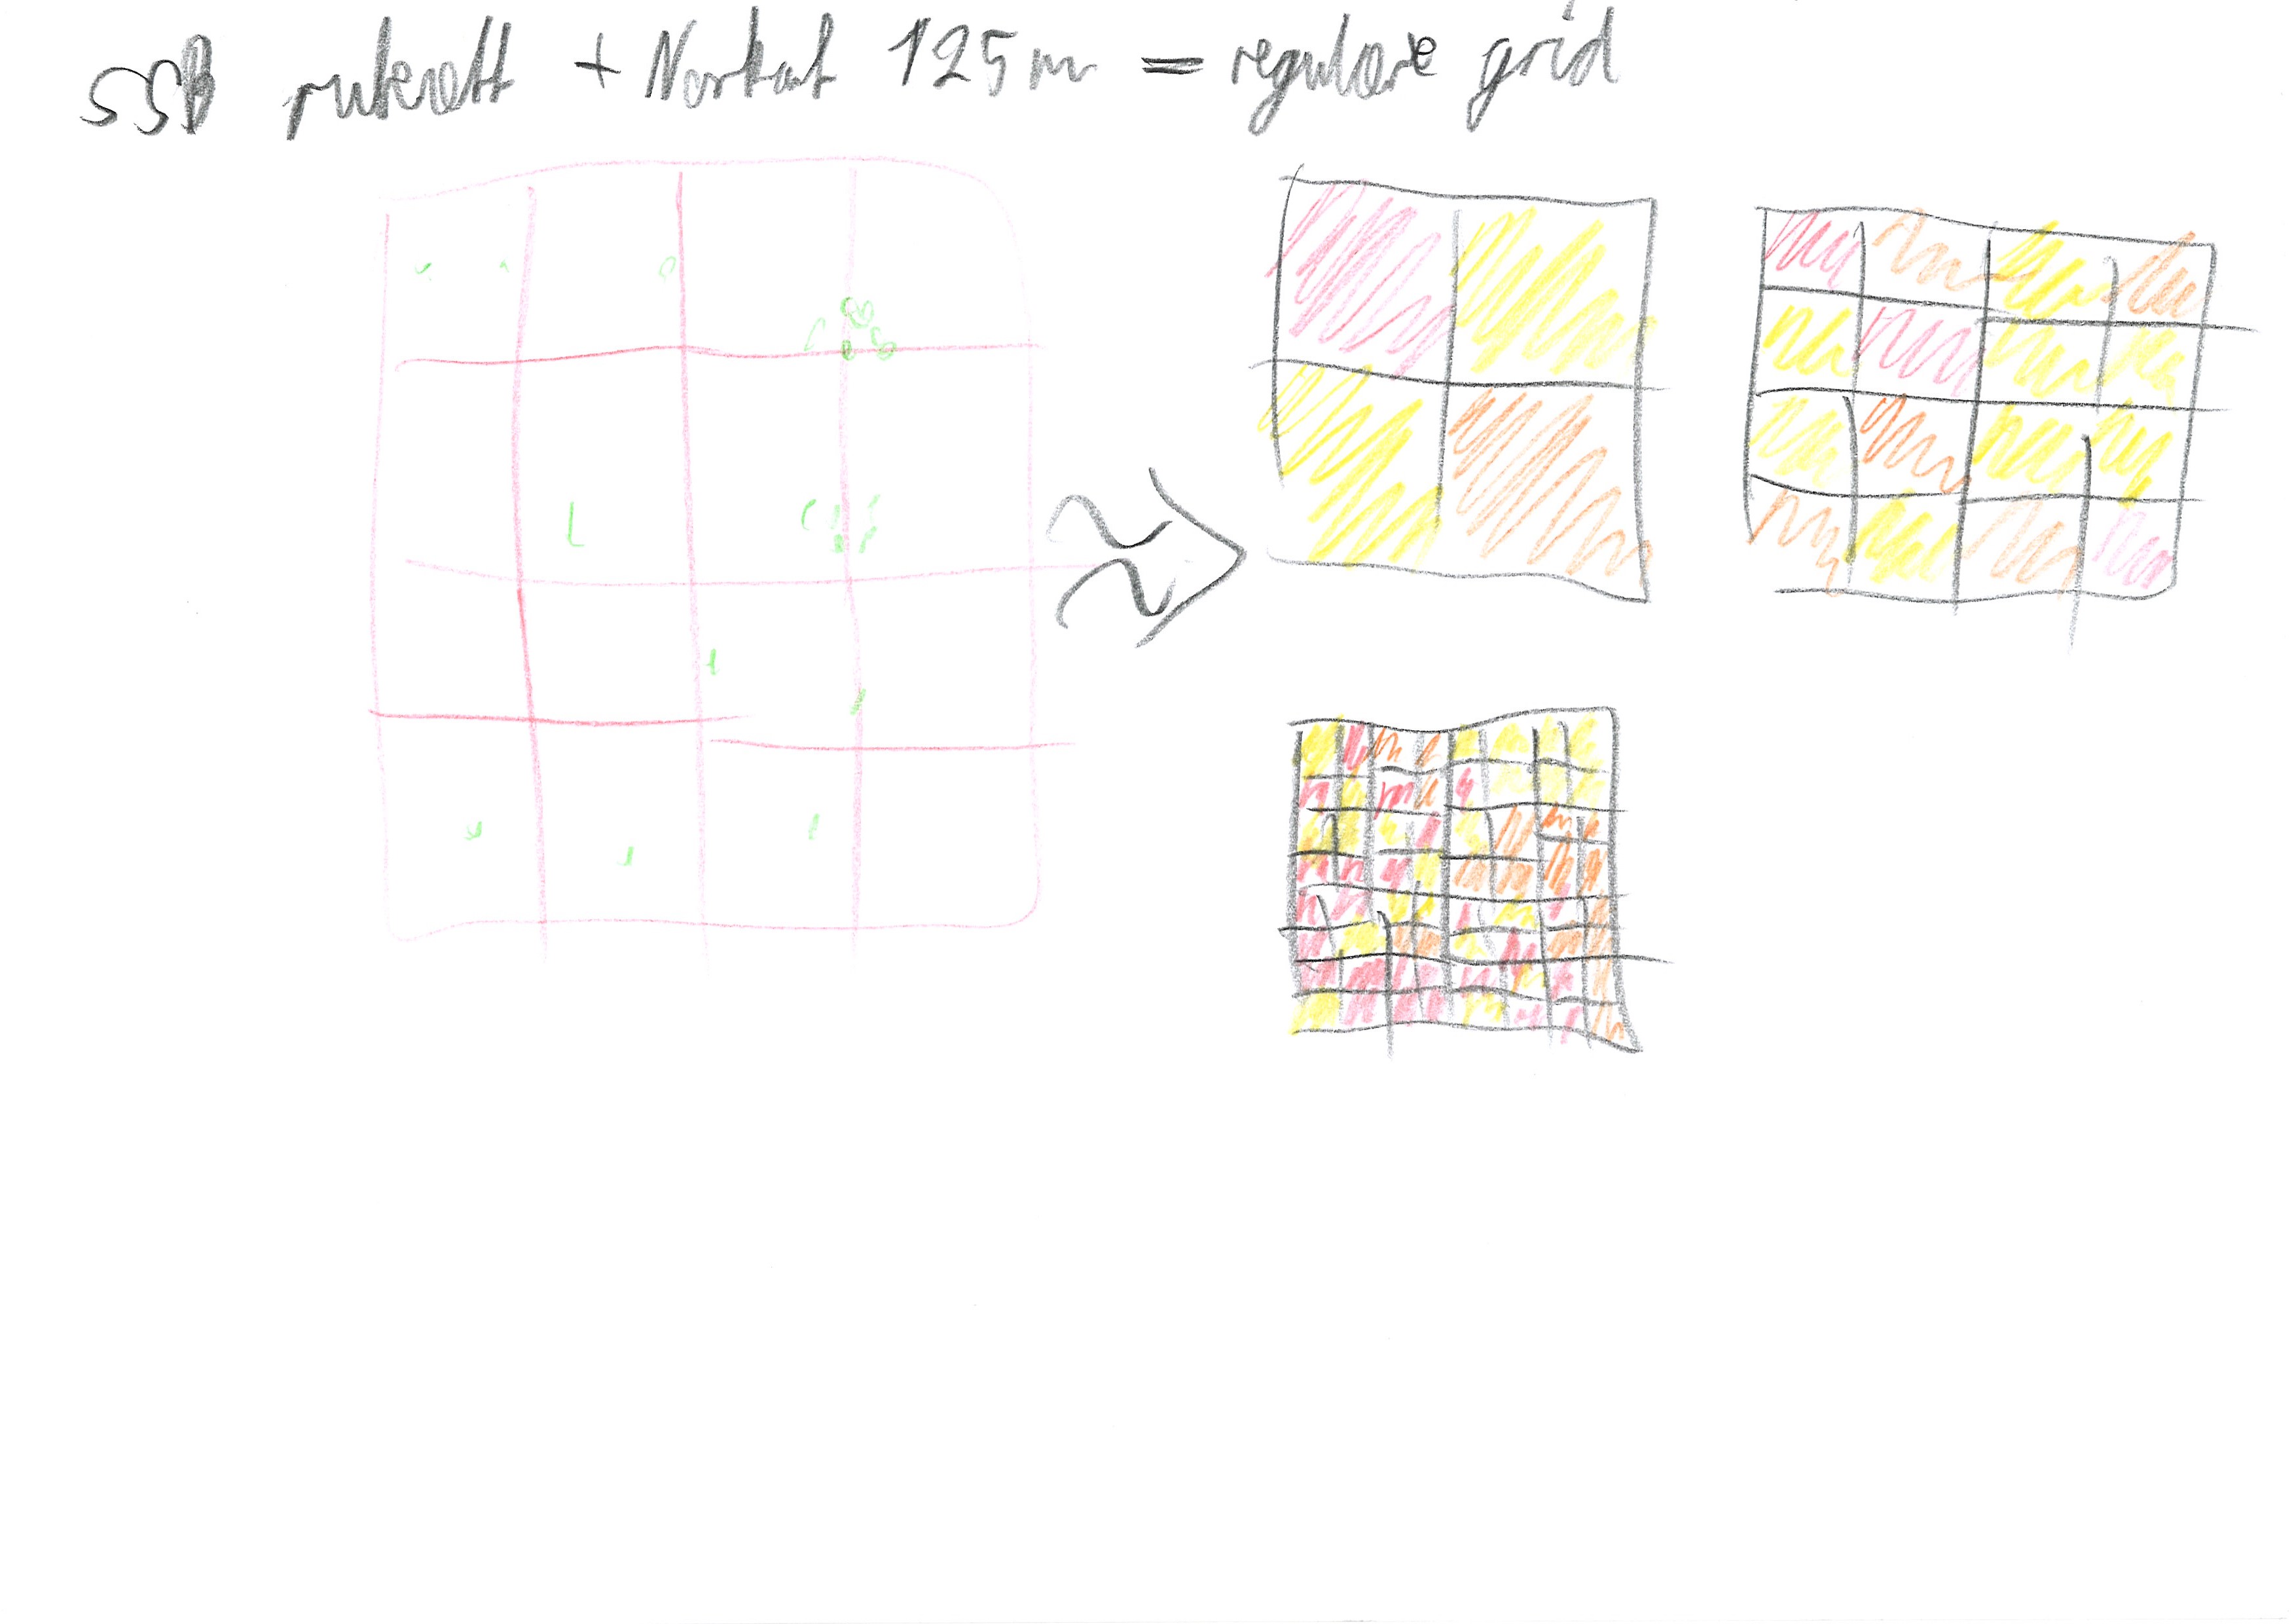 SSB rutenett + Nortraf 125m = regulære grid